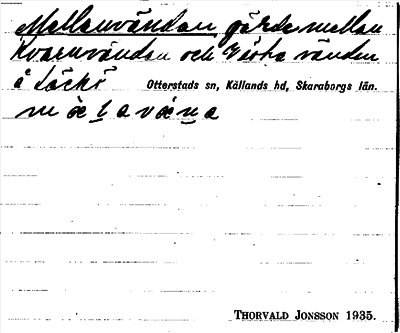 Mellanvändan gärde mellan
Kvarnvändan och Västra vändan
å Läckö Otterstads sn, Kållands hd, Skaraborgs län.
mælavæna
THORVALD JONSSON 1935.